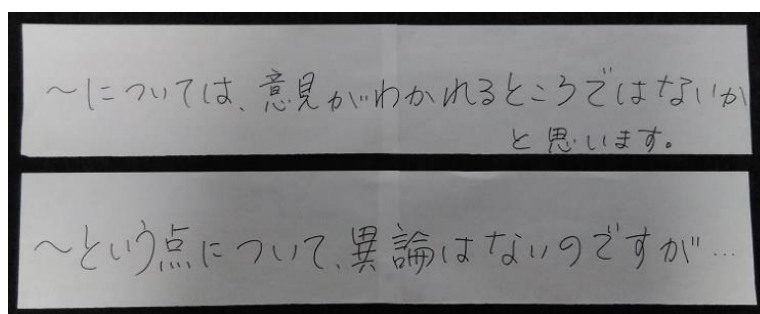 ~については、意見がわかれるところではないか
と思います。
~という点について、異論はないのですが…